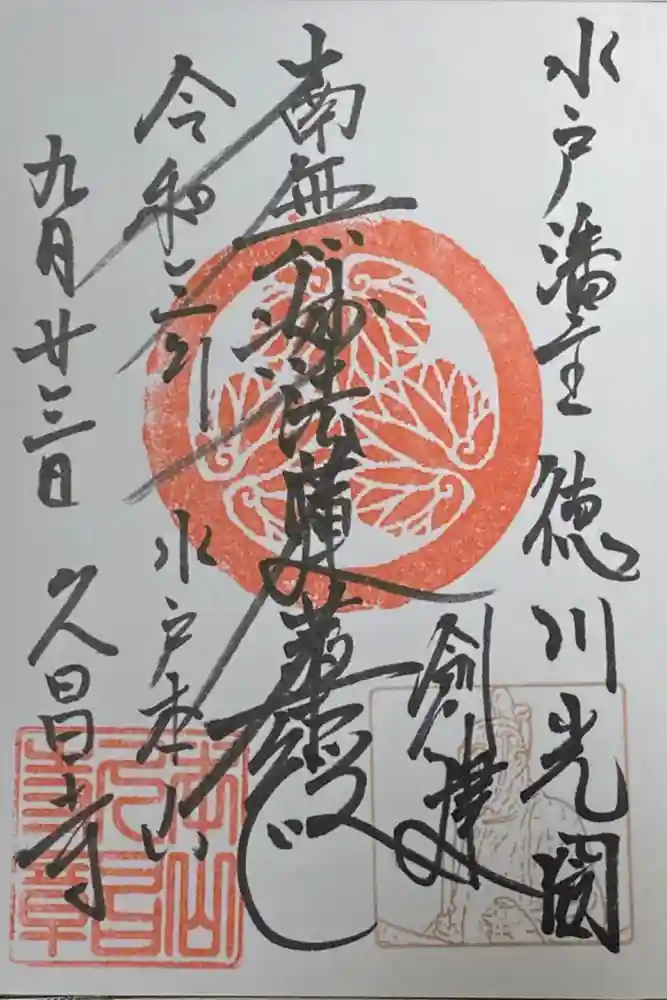 水戸藩主 徳川光圀
創建
南無妙法蓮華経
令和三年
水戸本山
九月廿三日
久昌寺